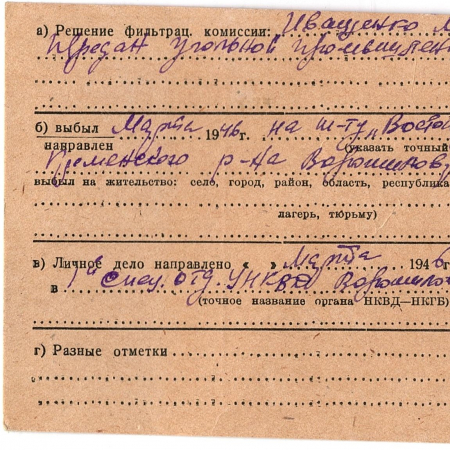 а) Решение фильтрац. комиссии: Иващенко
передан угольной
б) выбыл Марта 1946 г. на ш-ту „Восто
направлен (указать точный
Кременского р-на Ворошиловг
выбыл на жительство: село, город, район, область, республика
лагерь, тюрьму)
в) Личное дело направлено « » Марта 1946 г
в 1й Спец. отд. УНКВД Ворошило
(точное название органа НКВД—НКГБ)
г) Разные отметки